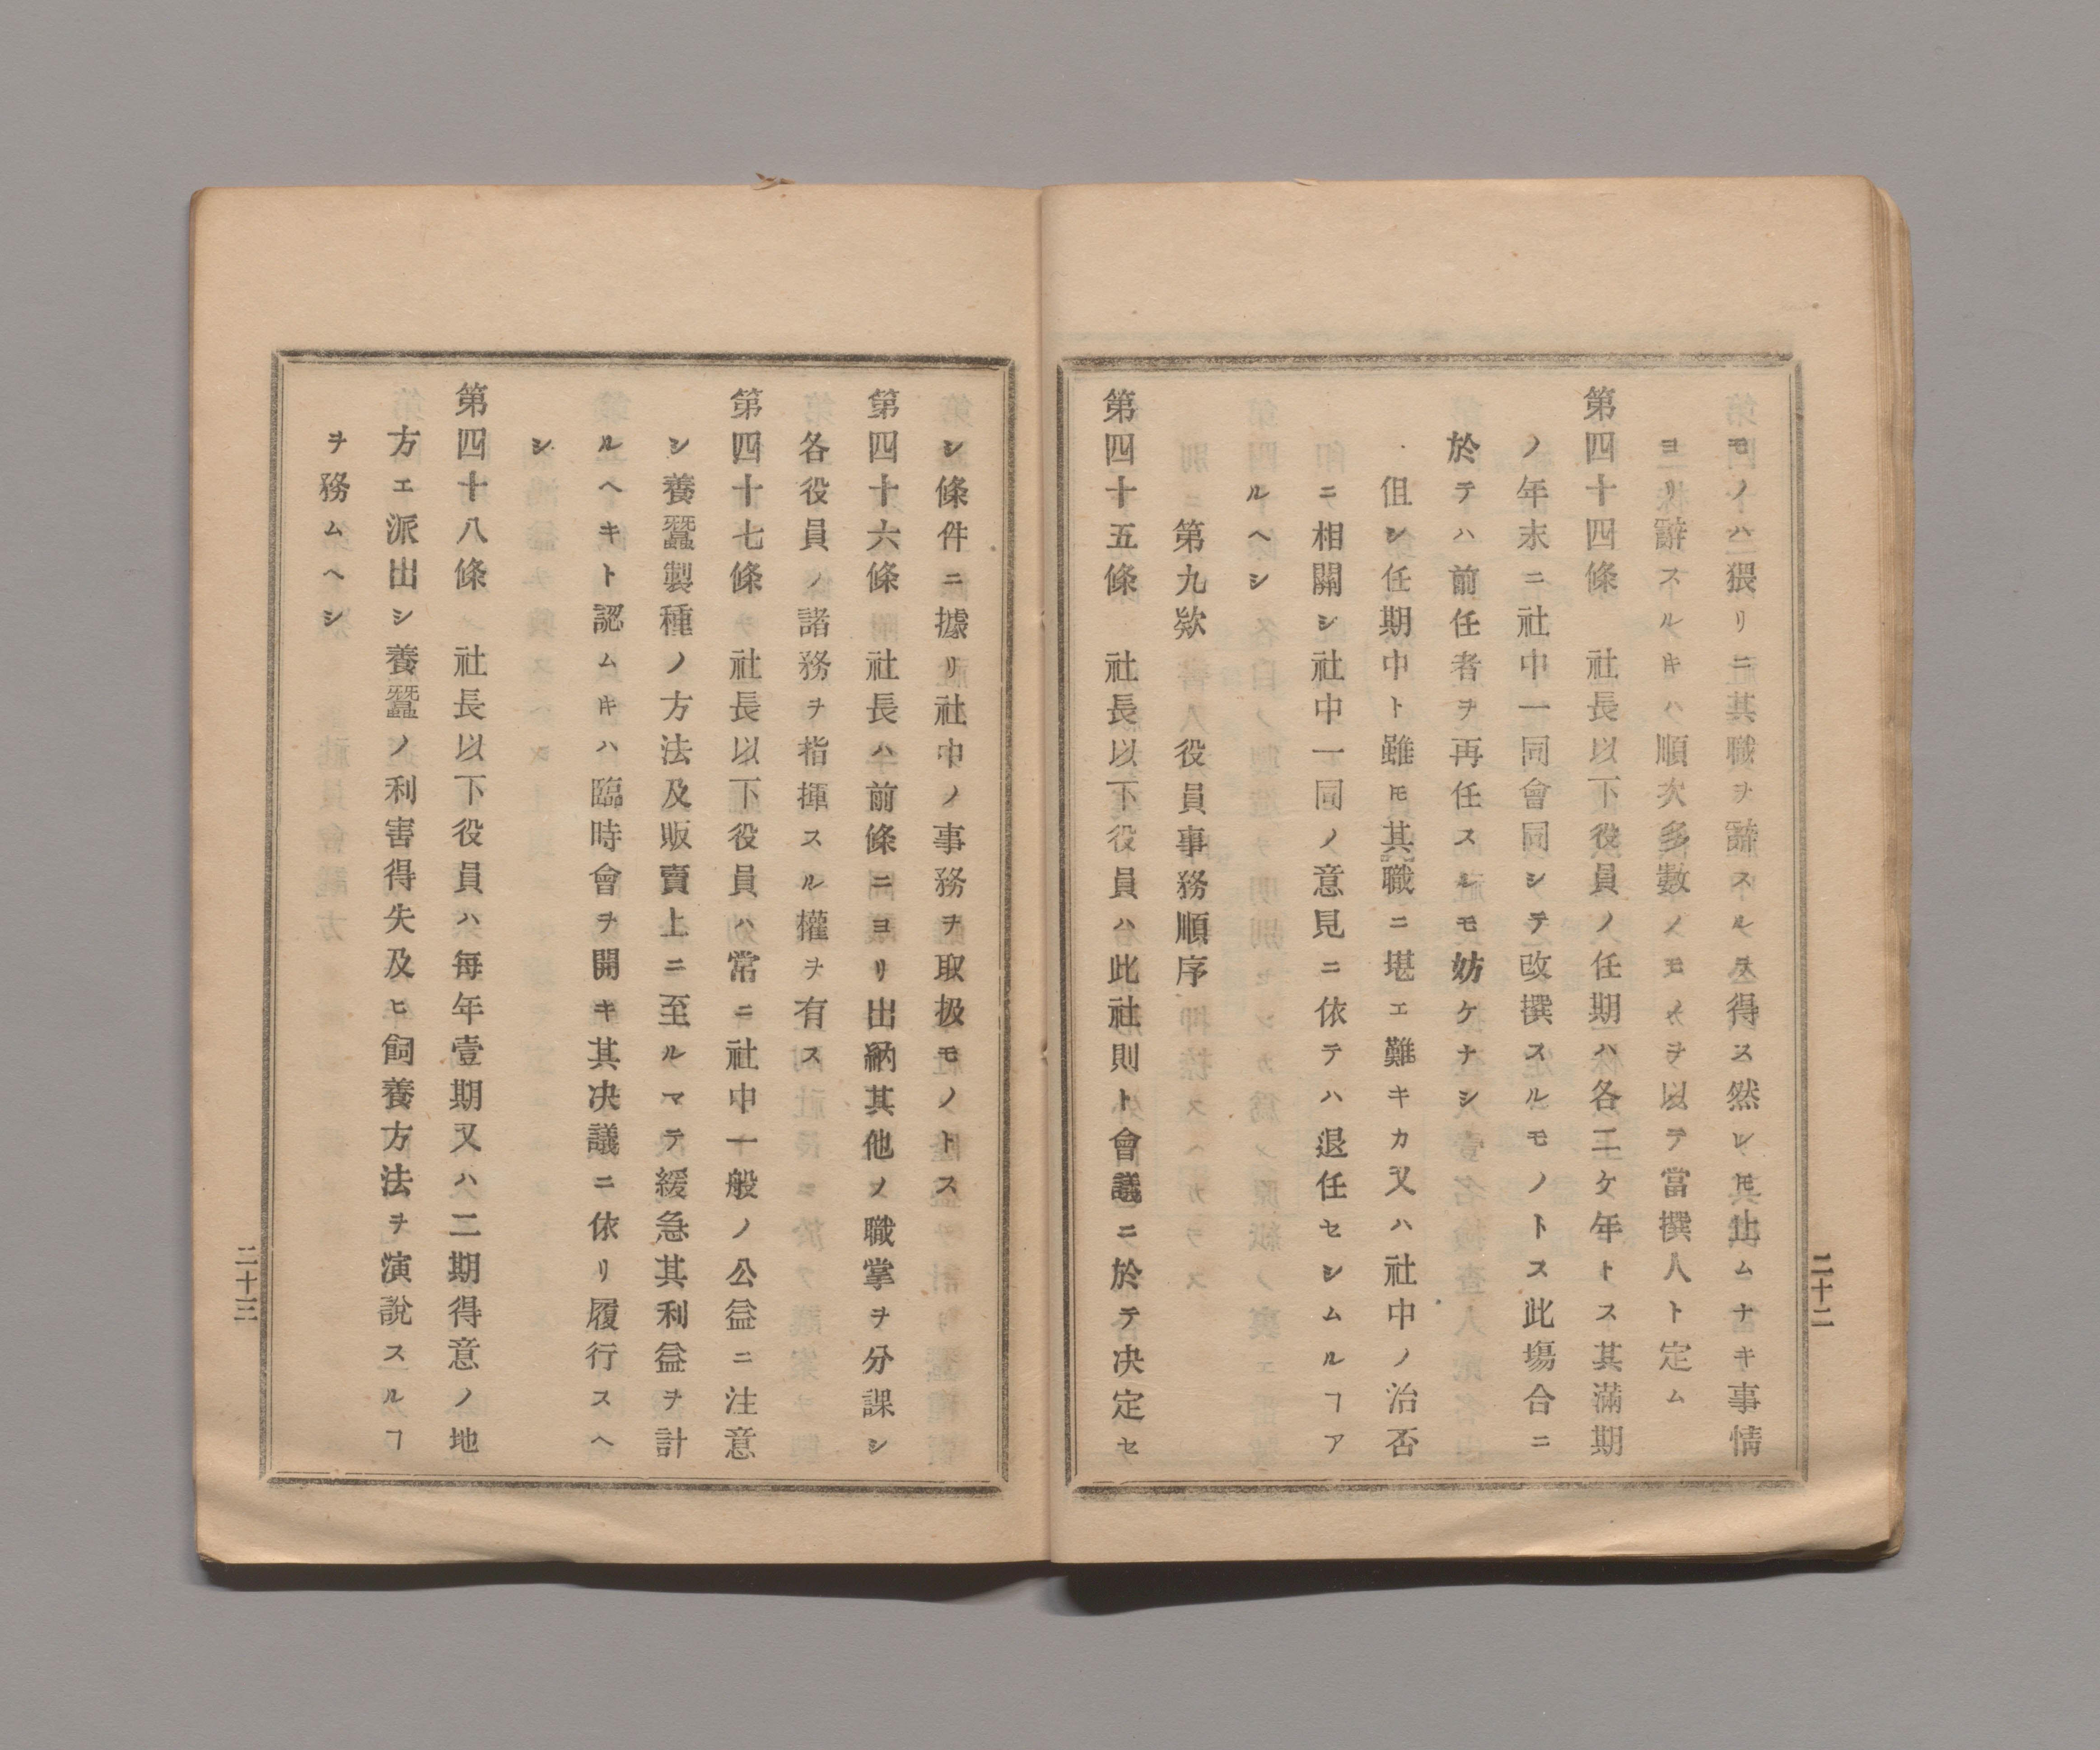 モノハ猥リニ其職ヲ辭スルヲ得ス然レ𪜈止ムナキ事情
ヨリ辭スルキハ順次多數ノモノヲ以テ當撰人ト定ム
第四十四條　社長以下役員ノ任期ハ各二ケ年トス其滿期
ノ年末ニ社中一同會同シテ改撰スルモノトス此塲合ニ
於テハ前任者ヲ再任スルモ妨ケナシ
但シ任期中ト雖𪜈其職ニ堪エ難キカ又ハ社中ノ治否
ニ相關シ社中一同ノ意見ニ依テハ退任セシムルヿア
ルヘシ
第九欵　役員事務順序
第四十五條　社長以下役員ハ此社則ト會議ニ於テ决定セ
二十二
シ條件ニ據リ社中ノ事務ヲ取扱モノトス
第四十六條　社長ハ前條ニヨリ出納其他ノ職掌ヲ分課シ
各役員ノ諸務ヲ指揮スル權ヲ有ス
第四十七條　社長以下役員ハ常ニ社中一般ノ公益ニ注意
シ養蠶製種ノ方法及販賣上ニ至ルマテ緩急其利益ヲ計
ルヘキト認ムキハ臨時會ヲ開キ其决議ニ依リ履行スヘ
シ
第四十八條　社長以下役員ハ毎年壹期又ハ二期得意ノ地
方エ派出シ養蠶ノ利害得失及ヒ飼養方法ヲ演說スルヿ
ヲ務ムヘシ
二十三